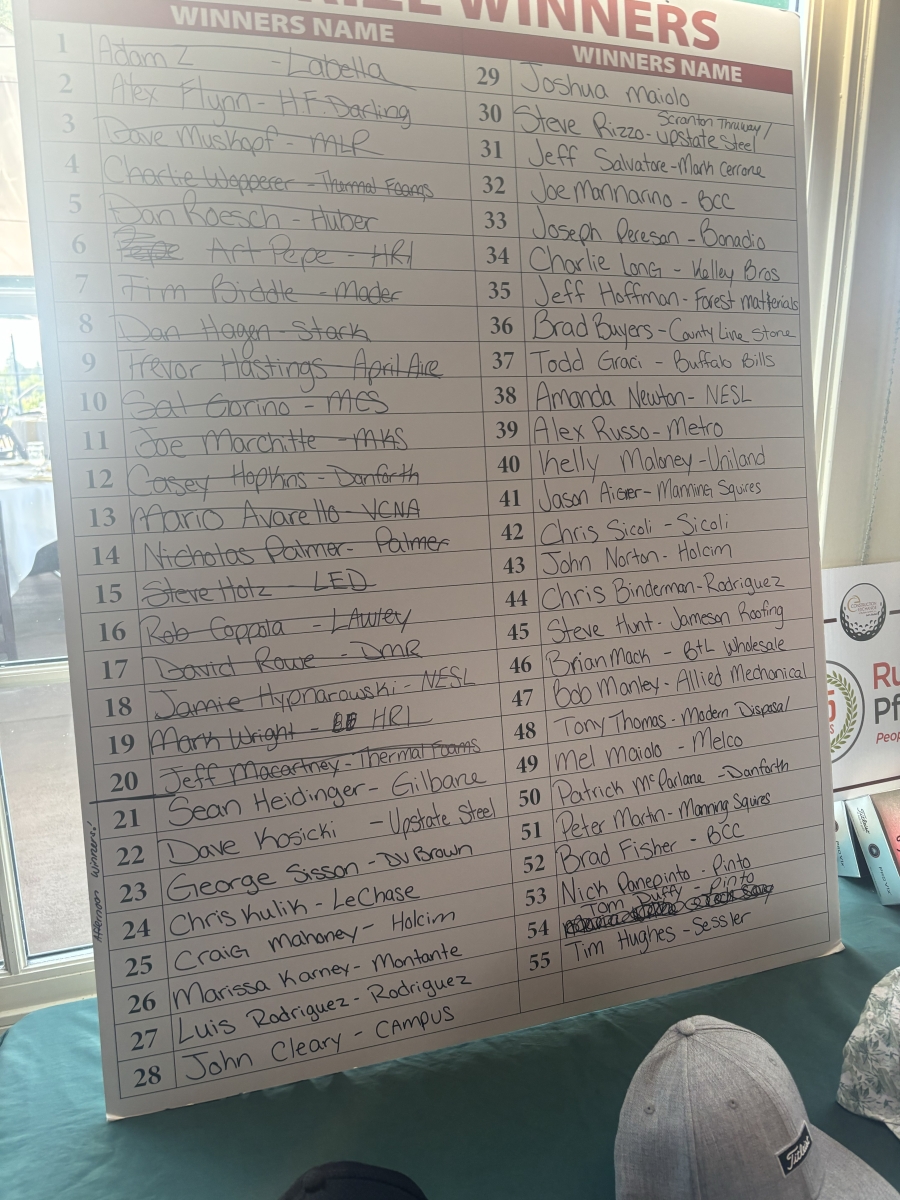 WINNERS
WINNERS NAME
1 Adam Z - Labella
2 Alex Flynn - H.F. Darling
3 Dave Muskopf - MLP
4 Charlie Wopperer - Thermal Foams
5 Dan Roesch - Huber
6 Art Pepe - HRI
7 Tim Biddle - Mader
8 Dan Hagen - Stark
9 Trevor Hastings April Aire
10 Sal Gorino - MCS
11 Joe Marchitte - MKS
12 Casey Hopkins - Danforth
13 Mario Avarello - VCNA
14 Nicholas Palmer - Palmer
15 Steve Hotz LED
16 Rob Coppola - LAWley
17 David Rowe - DMR
18 Jamie Hypnarowski - NESL
19 Mark Wright - HRI
20 Jeff Macartney - Thermal Foams
21 Sean Heidinger - Gilbane
22 Dave Kosicki - Upstate Steel
23 George Sisson - DV Brown
24 Chris Kulik - LeChase
25 Craig Mahoney - Holcim
26 Marissa Karney - Montante
27 Luis Rodriguez - Rodriguez
28 John Cleary - CAMPUS
Afternoon Winners!
WINNERS NAME
29 Joshua Maiolo
30 Steve Rizzo - Scranton Thruway / Upstate Steel
31 Jeff Salvatore - Mark Cerrone
32 Joe Mannarino - BCC
33 Joseph Peresan - Bonadio
34 Charlie Long - Kelley Bros
35 Jeff Hoffman - Forest matterials
36 Brad Buyers - County Line Stone
37 Todd Graci - Buffalo Bills
38 Amanda Newton - NESL
39 Alex Russo - Metro
40 Kelly Maloney - Uniland
41 Jason - Manning Squires
42 Chris Sicoli - Sicoli
43 John Norton - Holcim
44 Chris Binderman - Rodriguez
45 Steve Hunt - Jameson Roofing
46 Brian Mack - B+L Wholesale
47 Bob Manley - Allied Mechanical
48 Tony Thomas - Modern Disposal
49 Mel Maiolo - Melco
50 Patrick McParlane - Danforth
51 Peter Martin - Manning Squires
52 Brad Fisher - BCC
53 Nick Panepinto - Pinto
54 Tom Duffy - Pinto
55 Tim Hughes - Sessler
CONSTRUCTION EXCHANGE
Ru
Pf
Peop
Titleist